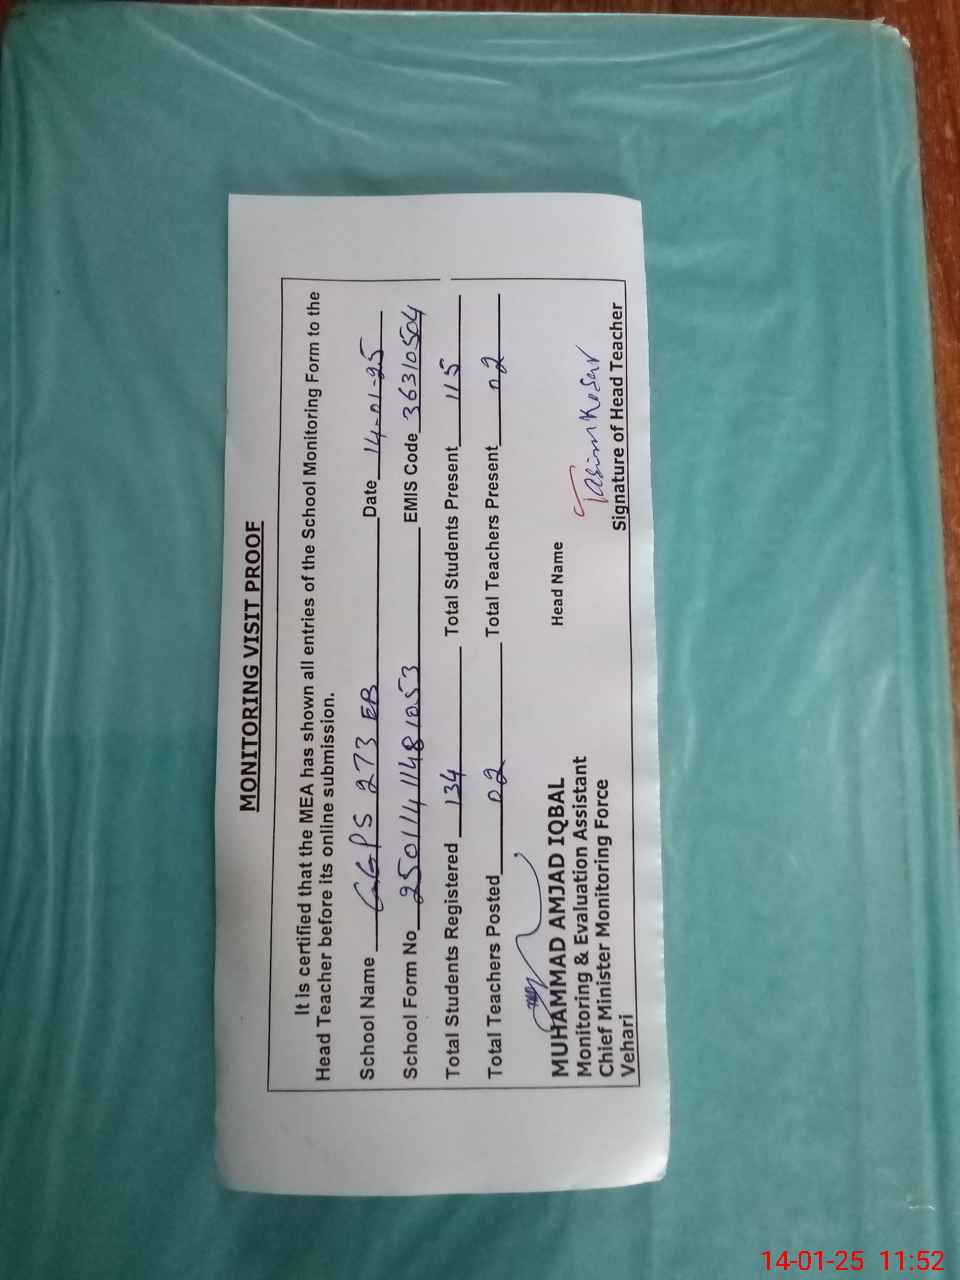 MONITORING VISIT PROOF
It is certified that the MEA has shown all entries of the School Monitoring Form to the
Head Teacher before its online submission.
School Name GGPS 273 EB Date 14-01-25
School Form No 25011411481053 EMIS Code 36310504
Total Students Registered 134 Total Students Present 115
Total Teachers Posted 02 Total Teachers Present 02
MUHAMMAD AMJAD IQBAL Head Name Tasim Kosar
Monitoring & Evaluation Assistant
Chief Minister Monitoring Force Signature of Head Teacher
Vehari
14-01-25 11:52